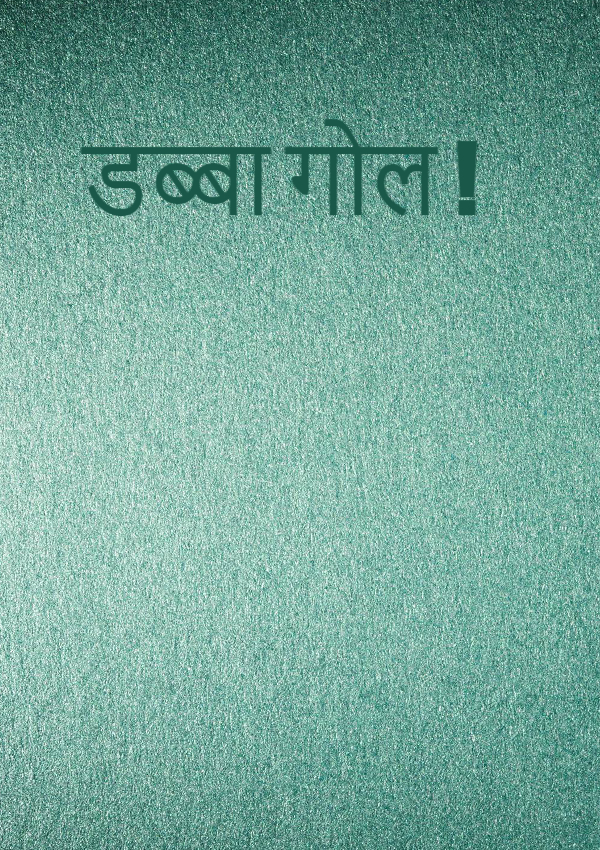 डब्बा गोल !